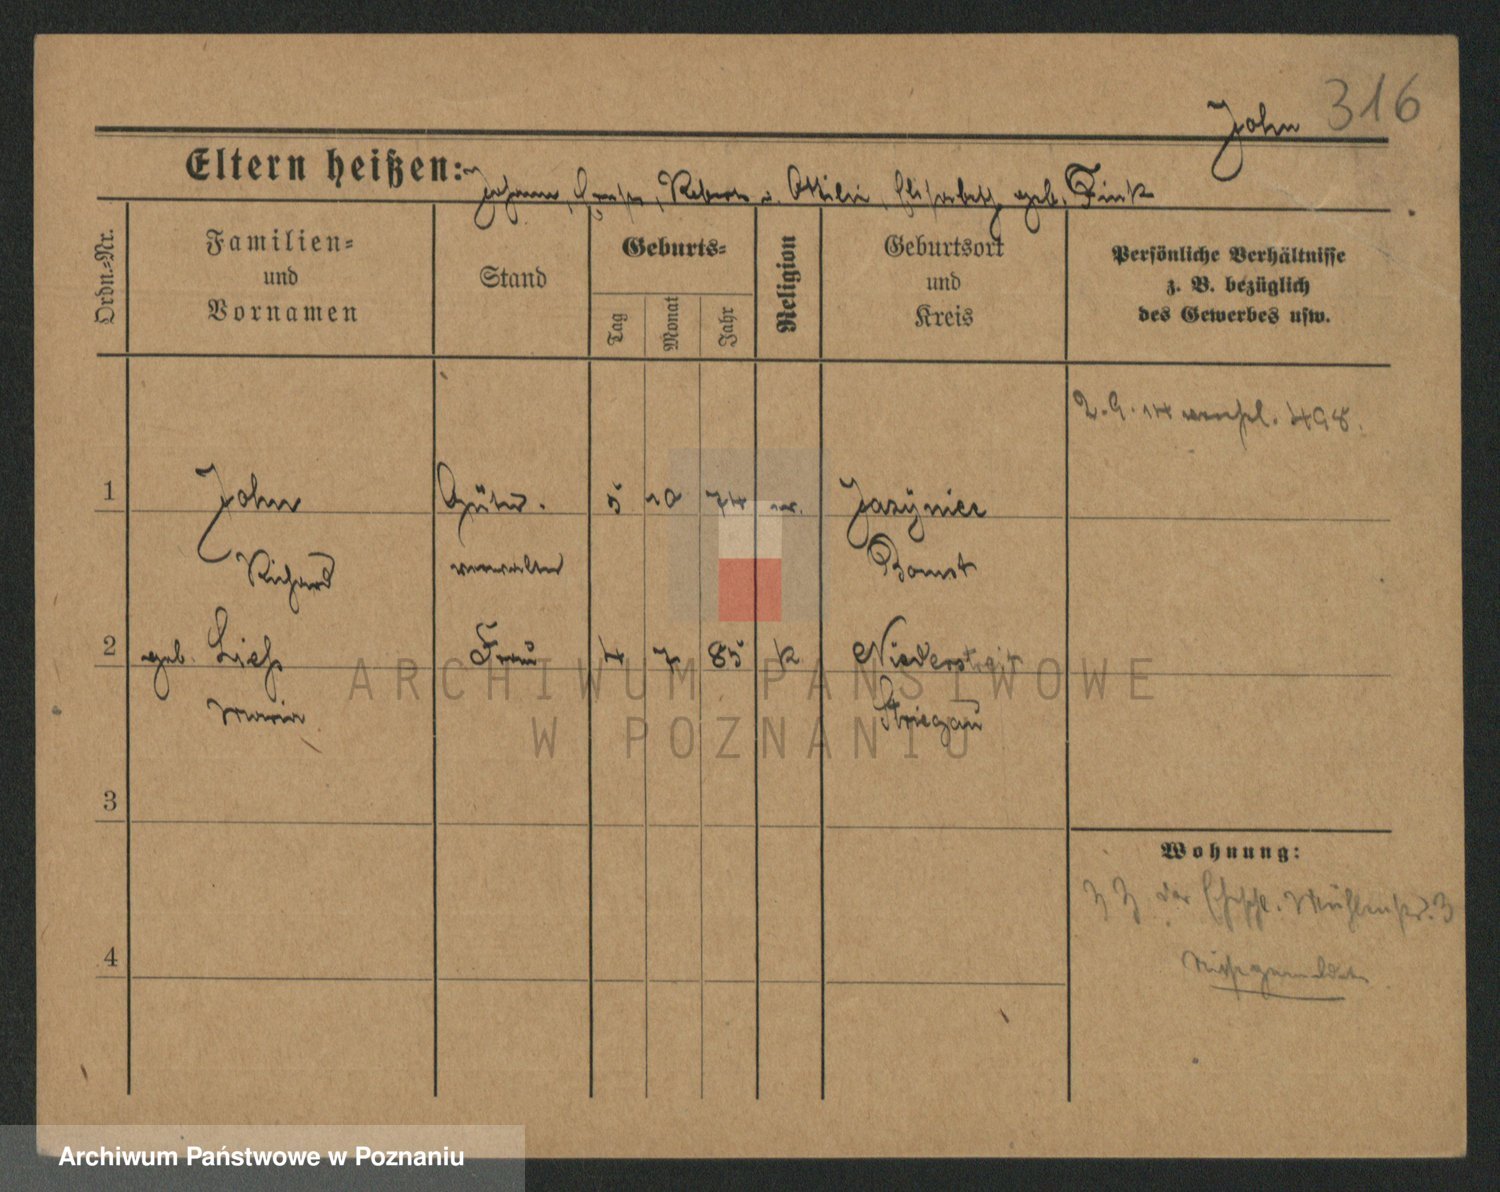 316
John
Eltern heißen: Johann, Robert u. Ottilie, Elisabeth geb. Fink
Ordn.-Nr.
Familien-
und
Vornamen
Stand
Geburts-
Tag
Monat
Jahr
Religion
Geburtsort
und
Kreis
Persönliche Verhältnisse
z. B. bezüglich
des Gewerbes usw.
2.9.14 498.
1 John Güter- 5 10 74 ev. Jazyniec
Richard verwalter Bomst
2 geb. Liehs Frau 4 7 85 k Niederstreit
Maria Striegau
3
Wohnung:
z Z Mühlenstr. 3
4
ARCHIWUM PAŃSTWOWE
W POZNANIU
Archiwum Państwowe w Poznaniu